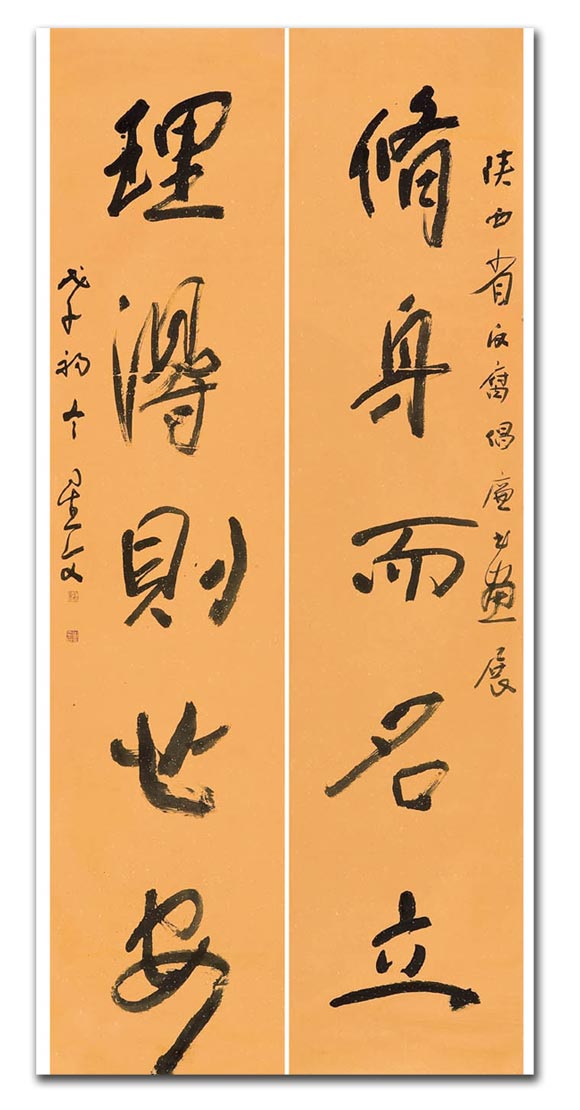 陕西省反腐倡廉书畫展
脩身而名立
理得則世安
戊子初冬